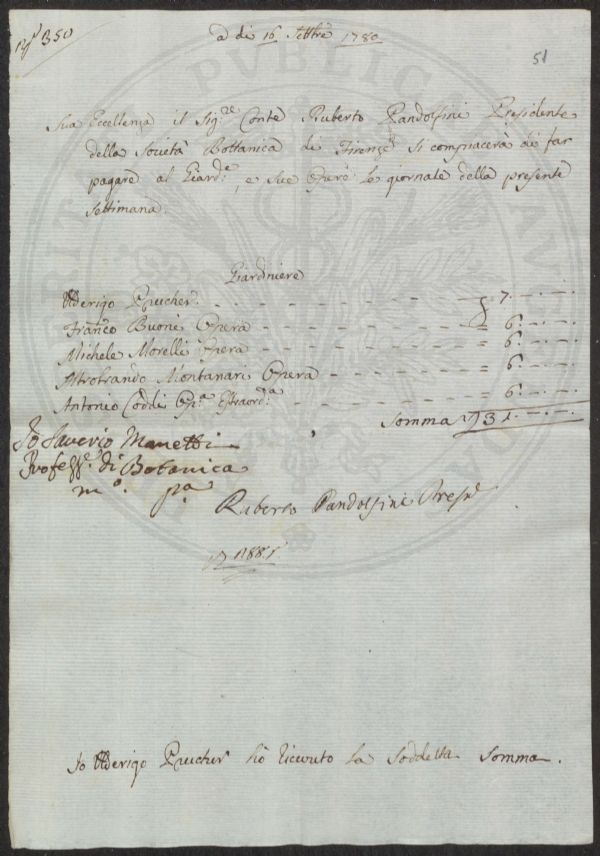 N.° 350
a dì 16 Settre 1780
51
Sua Eccellenza il Sig.re Conte Ruberto Pandolfini Presidente
della Società Bottanica di Firenze si compiacerà di far
pagare al Giard.e, e sue Opere le giornate della presente
Settimana.
Giardiniere
Ulderigo Prucher 7
Franco Buoni Opera 6
Michele Morelli Opera 6
Montanari Opera 6
Antonio Coddi Op.a Estraord.a 6
Somma 31
Io Saverio Manetti
Profess.e di Botanica
m.o p.a
Ruberto Pandolfini Presid.e
Io Ulderigo Prucher hò riceuto la Soddetta Somma.